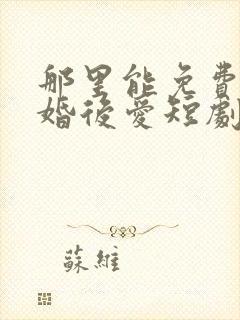 那里能免費
婚後愛短劇
蘇維